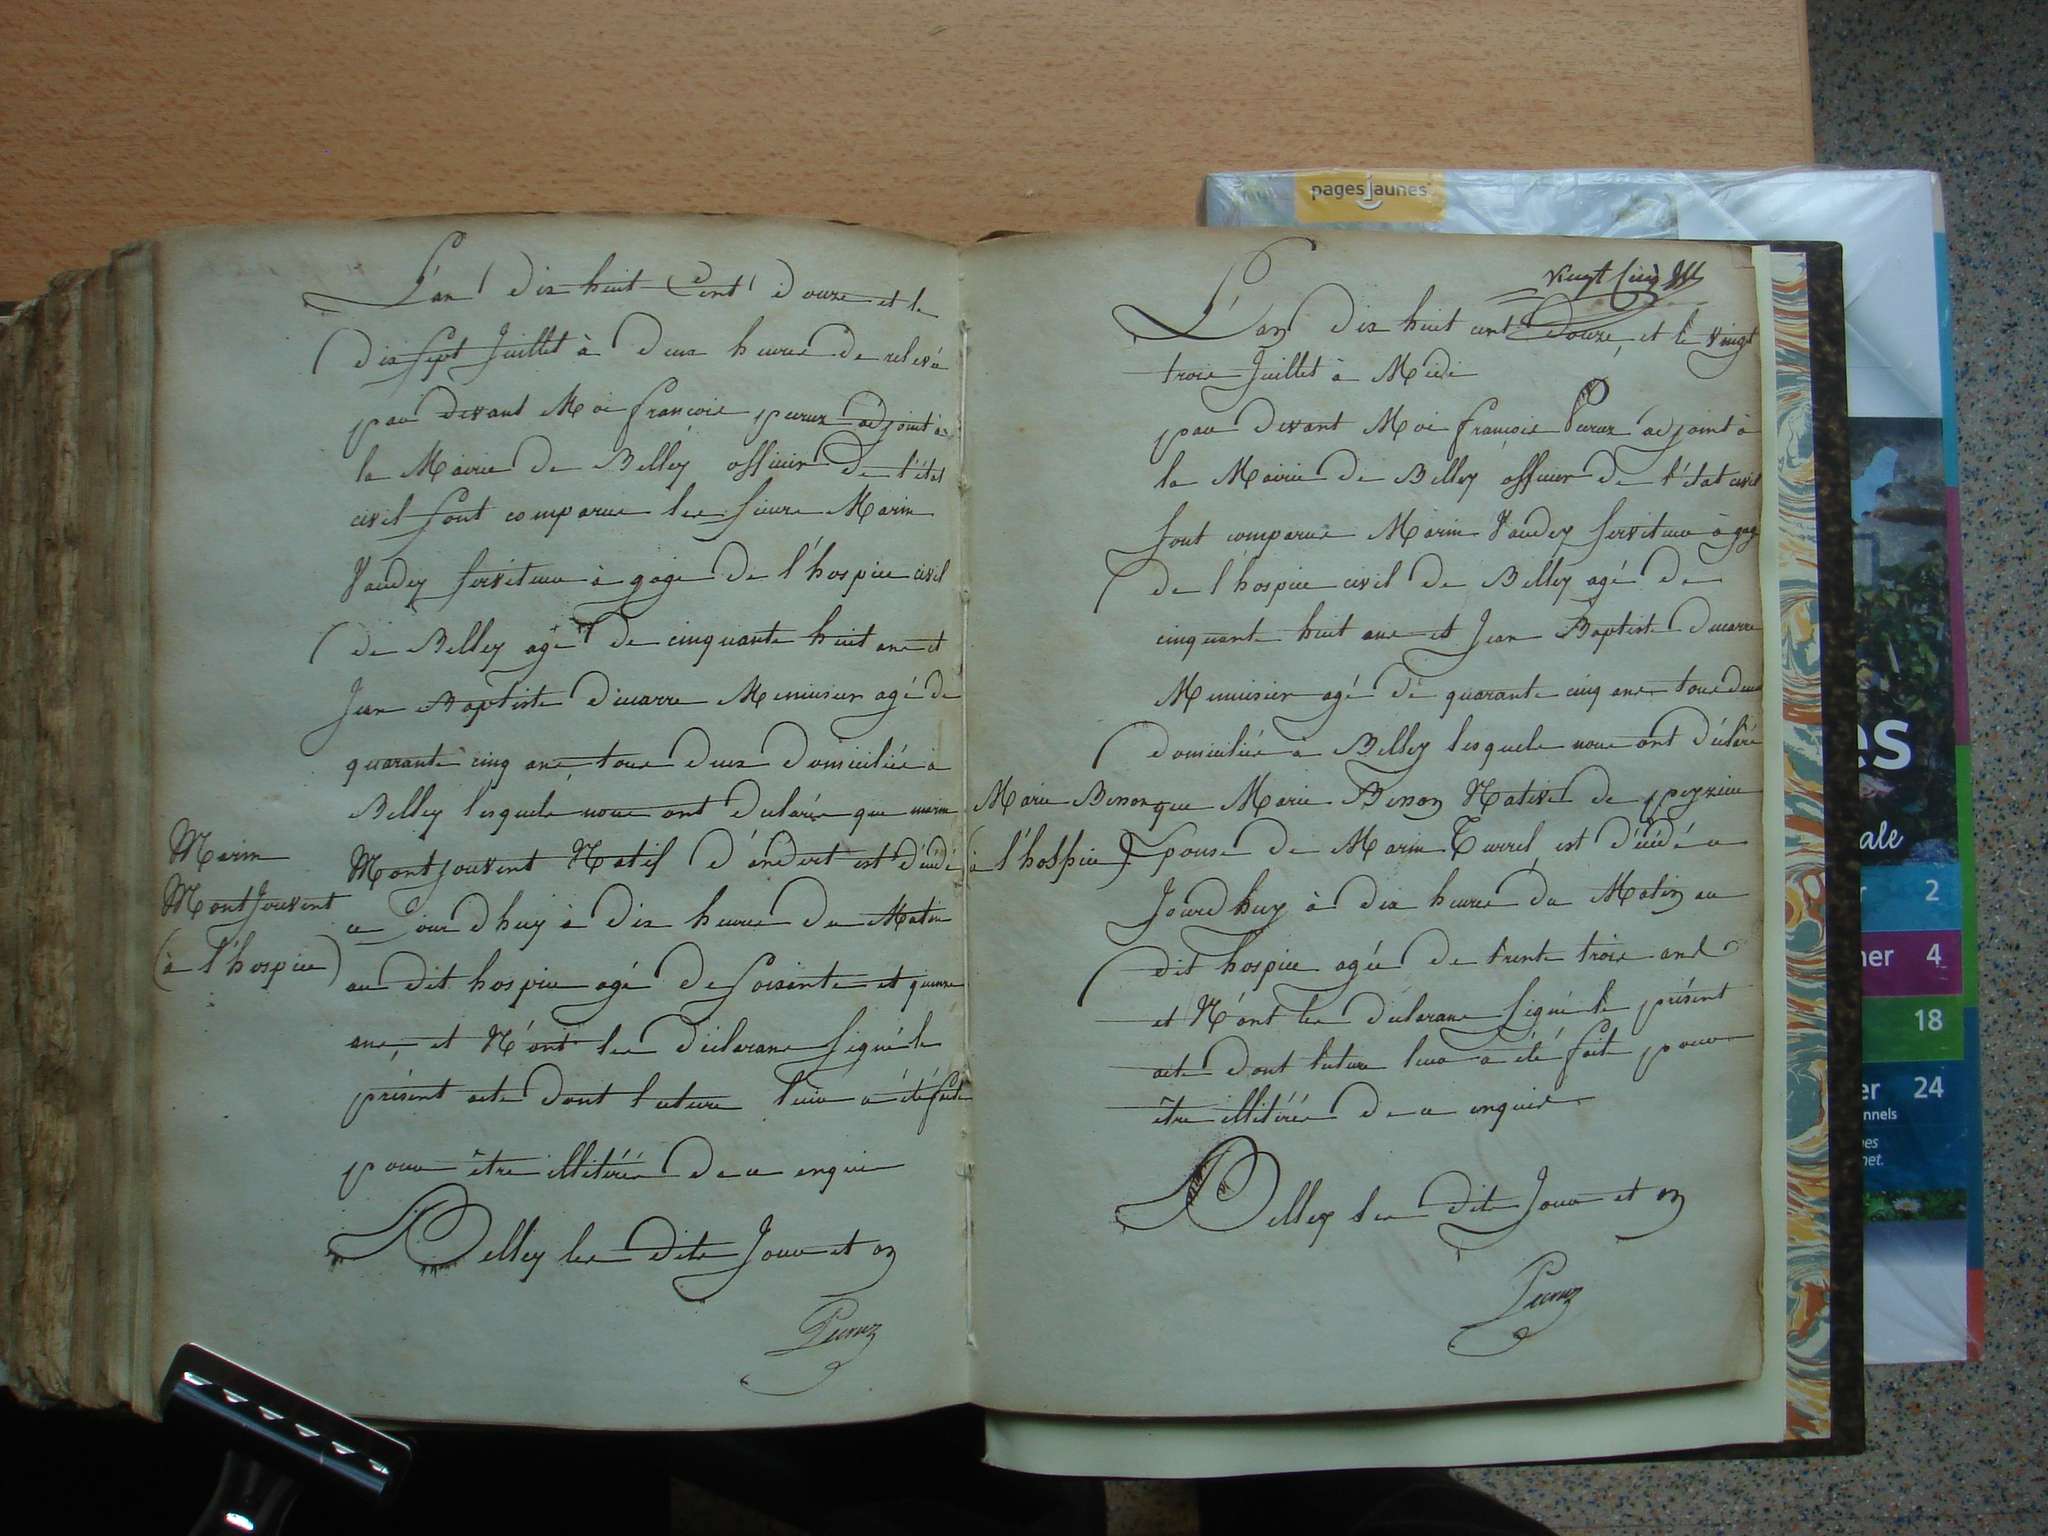 L'an dix huit Cent douze et le
dix sept Juillet à deux heures de relevé
par devant Moi françois peruz adjoint à
la Mairie de Belley officier de l'état
civil sont comparus les sieurs Marin
Vaudey serviteur à gage de l'hospice civil
de Belley agé de cinquante huit ans et
Jean Baptiste ducarre Menuisier agé de
quarante cinq ans, tous deux domiciliés à
Belley lesquels nous ont déclarés que marin
Marin
MontJouvent
(à l'hospice)
MontJouvent Natif d'andert est décédé
ce Jour dhuy à dix heures du Matin
au dit hospice agé de soisante et quinze
ans, et N'ont les déclarans signé le
présent acte dont lecture leur a été faite
pour être illitérés de ce enquis
Belley les dits Jour et an
Peruz
vingt cinq
L'an dix huit cent douze, et le vingt
trois Juillet à Midi
par devant Moi françois Peruz adjoint à
la Mairie de Belley officier de l'état civil
sont comparus Marin Vaudey serviteur à gage
de l'hospice civil de Belley agé de
cinquante huit ans et Jean Baptiste ducarre
Menuisier agé de quarante cinq ans tous deux
domiciliés à Belley lesquels nous ont déclaré
Marie Besson
(à l'hospice)
que Marie Besson Native de peyzieu
Epouse de Marin Turrel est décédé ce
Jourd'huy à dix heures du Matin au
dit hospice agée de trente trois ans
et N'ont les déclarans signé le présent
acte dont lecture leur a été faite pour
être illitérés de ce enquis
Belley les dits Jour et an
Peruz
pages jaunes
es
ale
2
ner 4
18
er 24
nnels
nes
net.